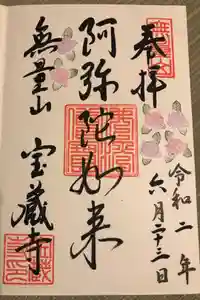 奉拝
令和二年
六月二十三日
阿弥陀如来
無量山
宝蔵寺